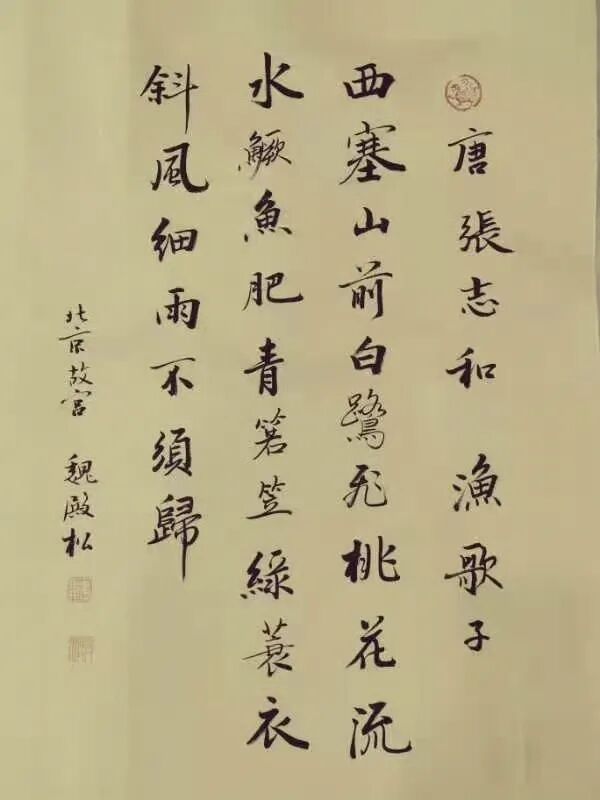 唐張志和 漁歌子
西塞山前白鷺飛桃花流
水鱖魚肥青箬笠綠蓑衣
斜風細雨不須歸
北京故宮 魏殿松